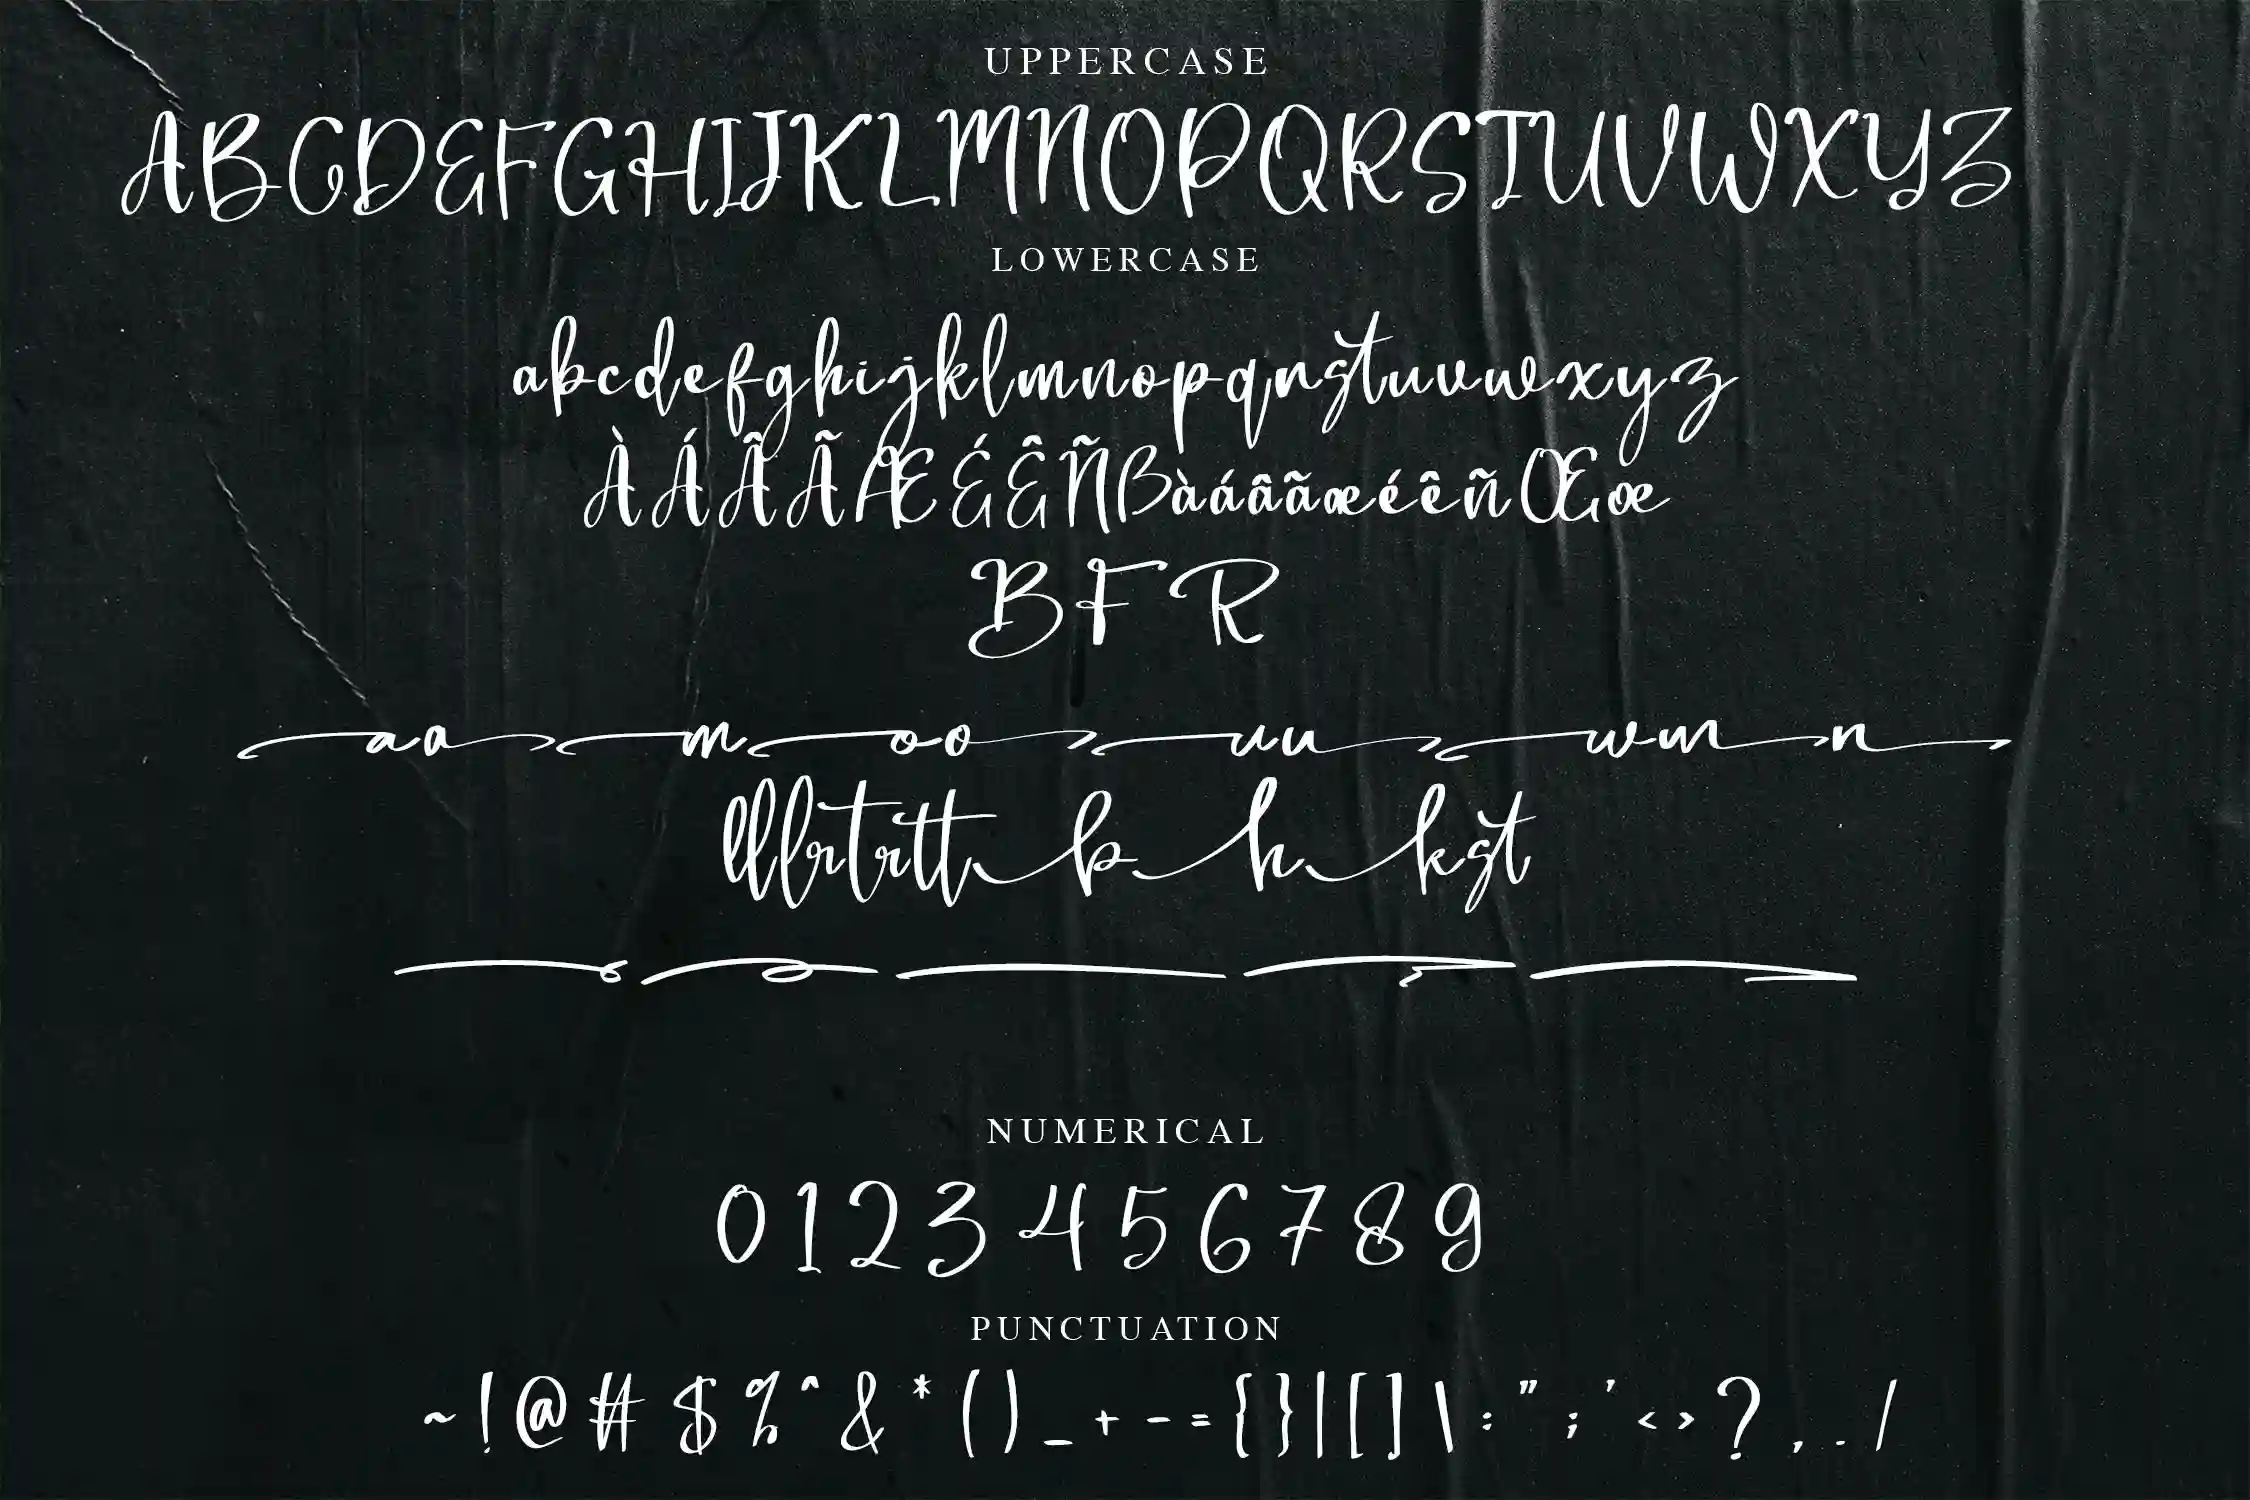 UPPERCASE
ABCDEFGHIJKLMNOPQRSTUVWXYZ
LOWERCASE
abcdefghijklmnopqrstuvwxyz
ÀÁÂÃÆÉÊÑßàáâãæéêñŒœ
B F R
aa m oo uu wm n
b h k st
NUMERICAL
0 1 2 3 4 5 6 7 8 9
PUNCTUATION
~ ! @ # $ % ^ & * ( ) _ + - = { } | [ ] \ : " ; ' < > ? , . /